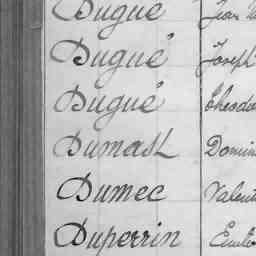 Dugué Jean
Dugué Joseph
Dugué Théodo
Dumast Domin
Dumec Valent
Duperrin Emile